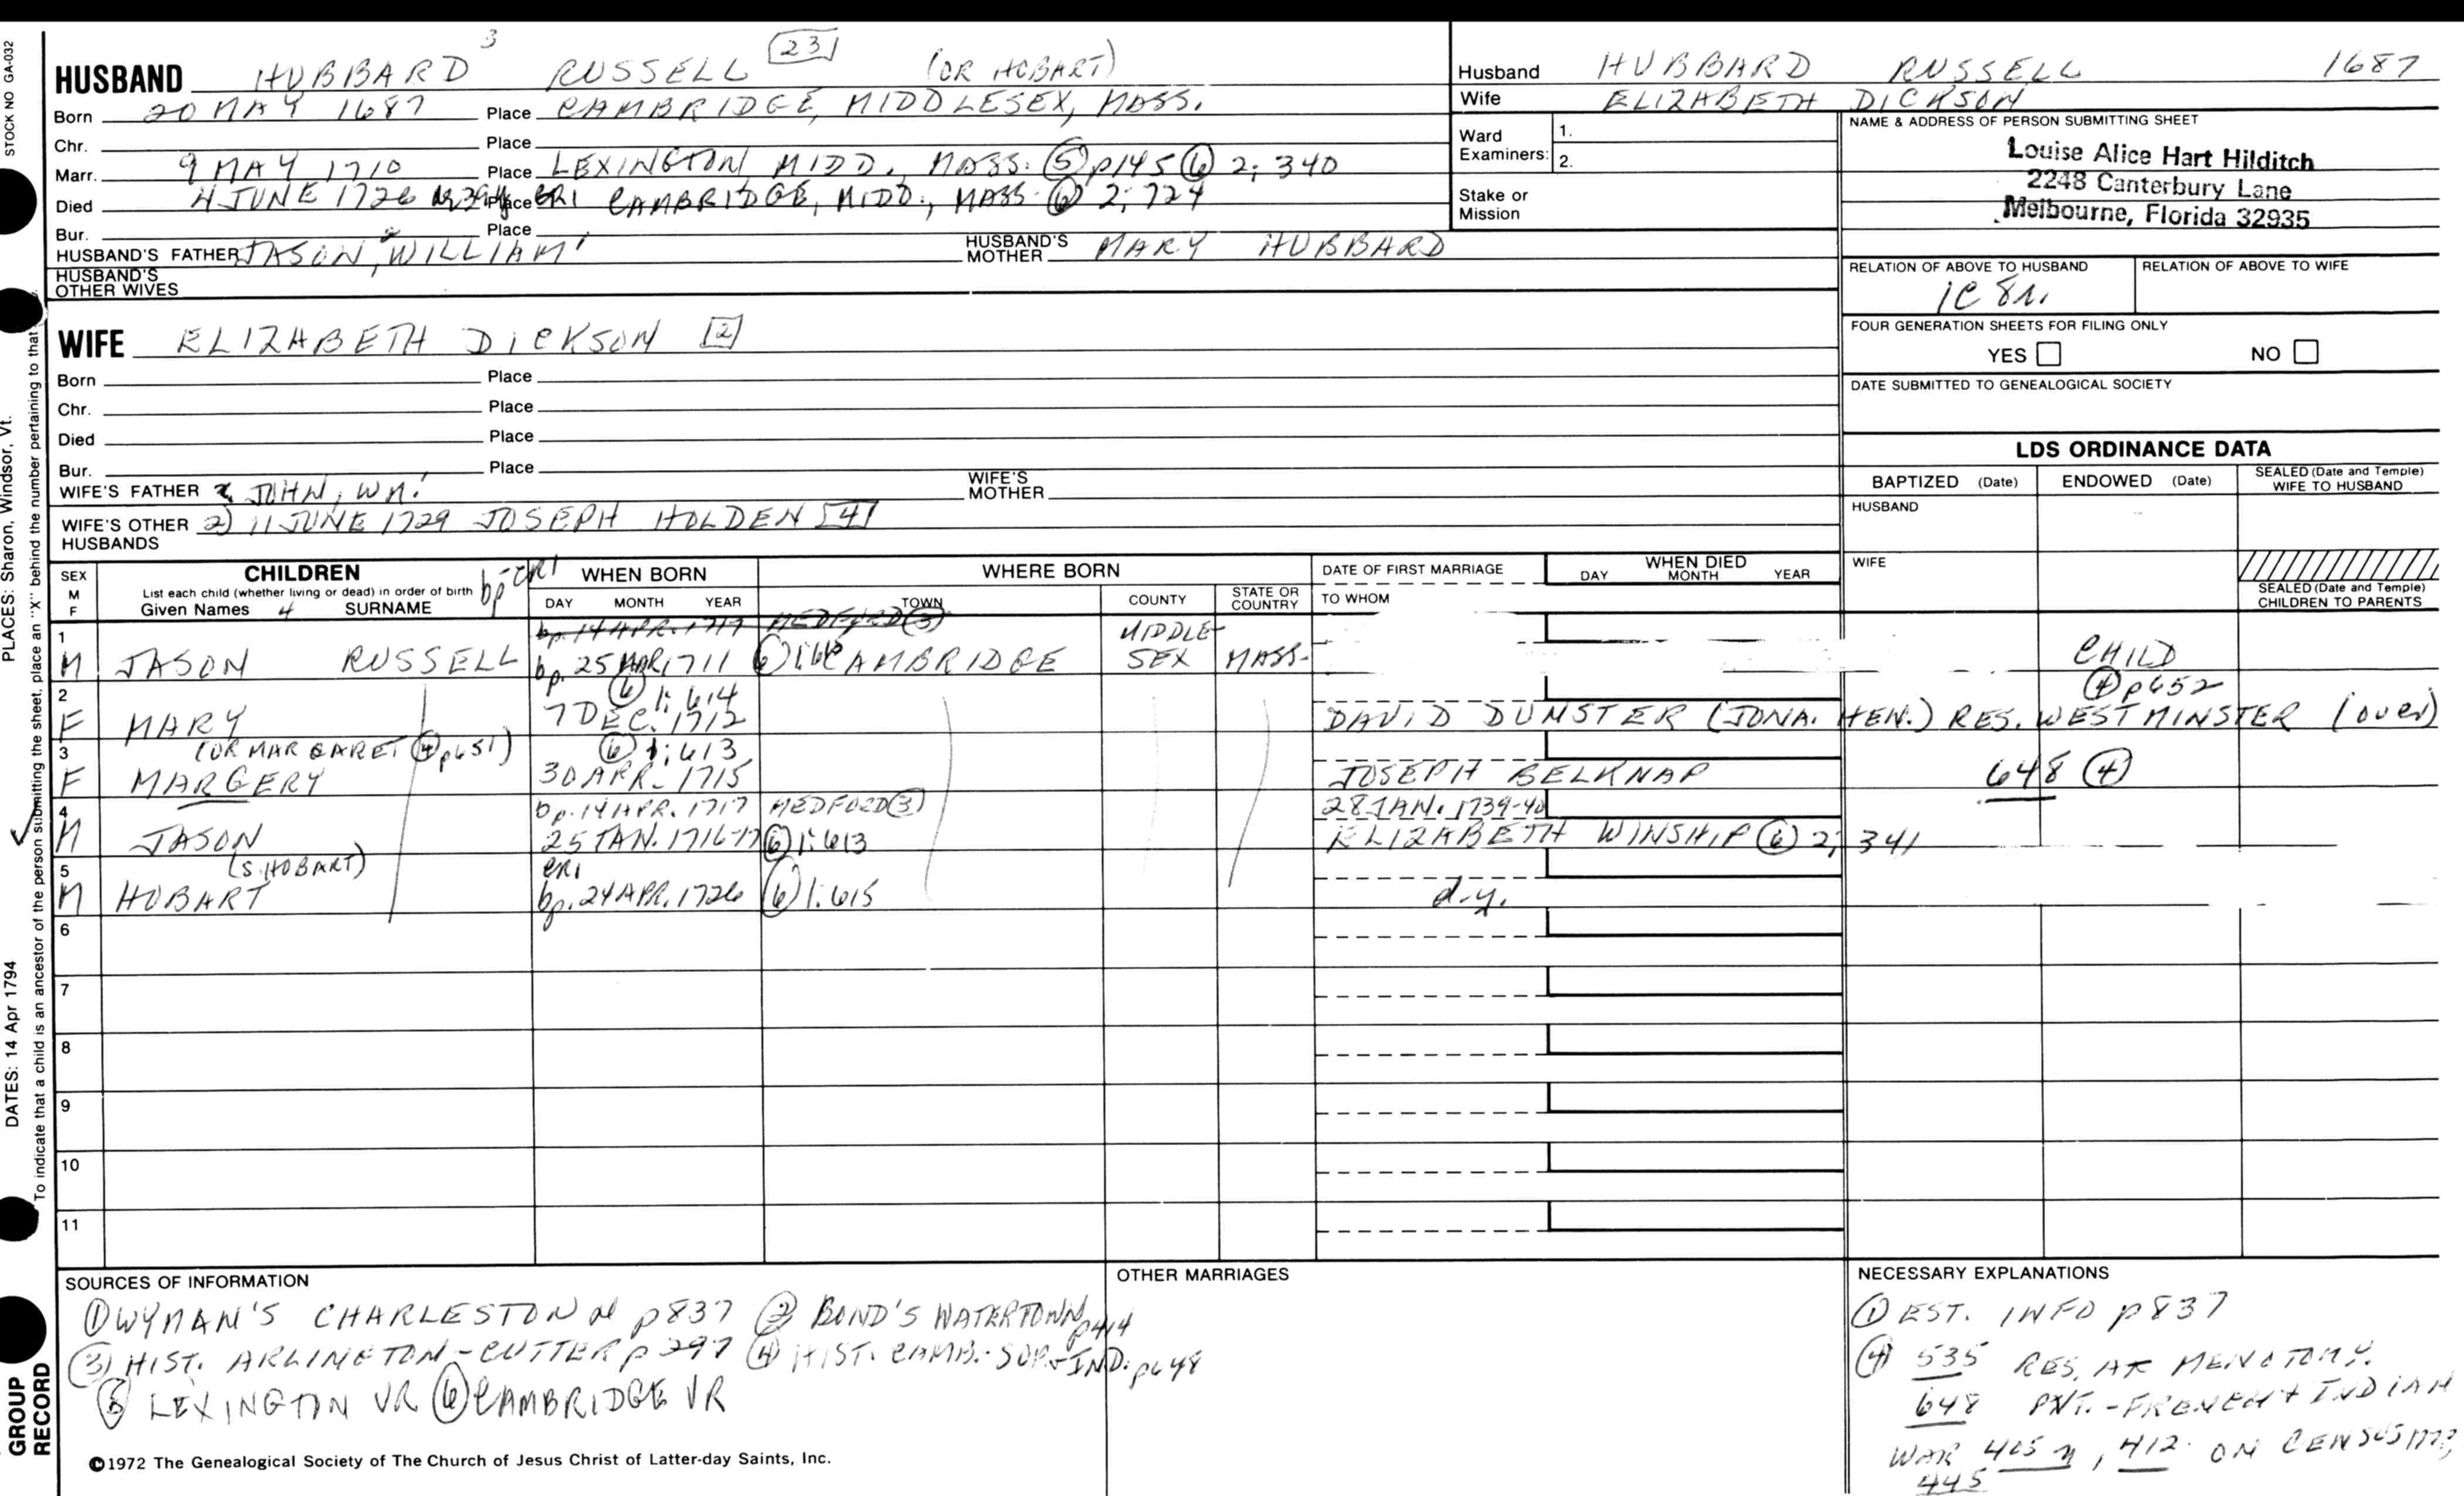 STOCK NO GA-032
PLACES: Sharon, Windsor, Vt.
DATES: 14 Apr 1794
To indicate that a child is an ancestor of the person submitting the sheet, place an "X" behind the number pertaining to that
GROUP
RECORD
HUSBAND HUBBARD 3 RUSSELL 23 (OR HOBART)
Born 20 MAY 1687 Place CAMBRIDGE, MIDDLESEX, MASS.
Chr. Place
Marr. 9 MAY 1710 Place LEXINGTON, MIDD., MASS. (5) p145 (6) 2; 340
Died 4 JUNE 1726 Place GR1 CAMBRIDGE, MIDD., MASS. (6) 2; 724
Bur. Place
HUSBAND'S FATHER JASON 2, WILLIAM 1 HUSBAND'S MOTHER MARY HUBBARD
HUSBAND'S OTHER WIVES
Husband HUBBARD RUSSELL 1687
Wife ELIZABETH DICKSON
Ward Examiners: 1. 2.
Stake or Mission
NAME & ADDRESS OF PERSON SUBMITTING SHEET
Louise Alice Hart Hilditch
2248 Canterbury Lane
Melbourne, Florida 32935
RELATION OF ABOVE TO HUSBAND RELATION OF ABOVE TO WIFE
1C 8r.
FOUR GENERATION SHEETS FOR FILING ONLY
YES NO
DATE SUBMITTED TO GENEALOGICAL SOCIETY
WIFE ELIZABETH DICKSON [2]
Born Place
Chr. Place
Died Place
Bur. Place
WIFE'S FATHER JOHN, WM. 1 WIFE'S MOTHER
WIFE'S OTHER HUSBANDS 2) 11 JUNE 1729 JOSEPH HOLDEN [4]
LDS ORDINANCE DATA
BAPTIZED (Date) ENDOWED (Date) SEALED (Date and Temple) WIFE TO HUSBAND
HUSBAND
WIFE
SEALED (Date and Temple) CHILDREN TO PARENTS
SEX M F CHILDREN
List each child (whether living or dead) in order of birth
Given Names 4 SURNAME bp-CR1
WHEN BORN DAY MONTH YEAR
WHERE BORN TOWN COUNTY STATE OR COUNTRY
DATE OF FIRST MARRIAGE
TO WHOM
WHEN DIED DAY MONTH YEAR
bp. 14 APR. 1717 MEDFORD (3)
1 M JASON RUSSELL bp. 25 MAR 1711 (6) CAMBRIDGE MIDDLESEX MASS. CHILD
(4) p652
2 (6) 1: 614
F MARY 7 DEC. 1712 DAVID DUNSTER (JONA. HEN.) RES. WESTMINSTER (over)
3 (OR MARGARET (4) p651) (6) 1; 613
F MARGERY 30 APR. 1715 JOSEPH BELKNAP 648 (4)
4 bp. 14 APR. 1717 MEDFORD (3) 28 JAN. 1739-40
M JASON 25 JAN. 1716-17 (6) 1: 613 ELIZABETH WINSHIP (6) 2; 341
5 (S. HOBART) CR1
M HOBART bp. 24 APR. 1726 (6) 1: 615 d.y.
6
7
8
9
10
11
SOURCES OF INFORMATION
(1) WYMAN'S CHARLESTON p837 (2) BOND'S WATERTOWN p414
(3) HIST. ARLINGTON - CUTTER p 297 (4) HIST. CAMB. - SUP. + IND. p648
(5) LEXINGTON VR (6) CAMBRIDGE VR
OTHER MARRIAGES
NECESSARY EXPLANATIONS
(1) EST. INFO p837
(4) 535 RES. AT MENOTOMY.
648 PVT. - FRENCH + INDIAN
WAR 405 n, 412 ON CENSUS 1777
445
©1972 The Genealogical Society of The Church of Jesus Christ of Latter-day Saints, Inc.